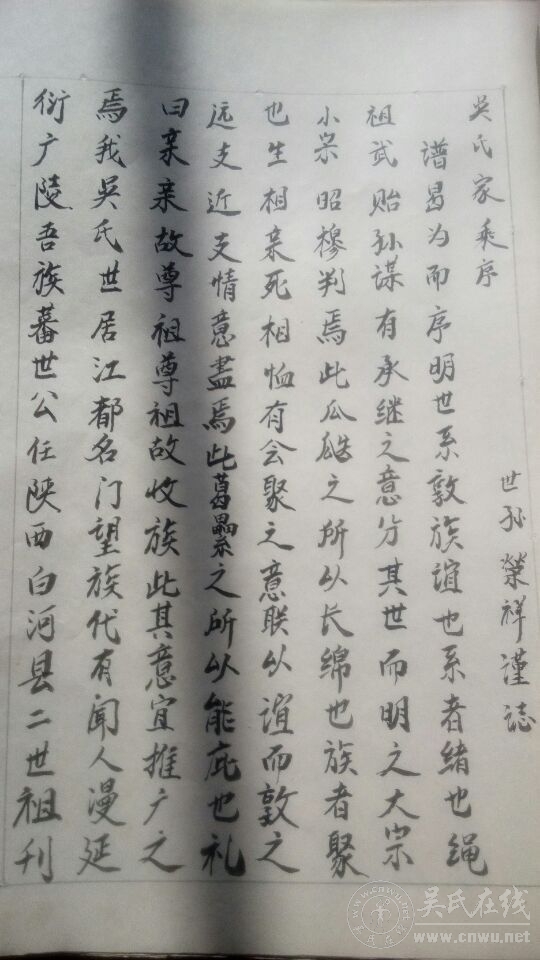 吴氏家乘序
世孙荣祥谨誌
谱曷为而序明世系敦族谊也系者绪也绳
祖武贻孙谋有承继之意分其世而明之大宗
小宗昭穆判焉此瓜瓞之所从长绵也族者聚
也生相亲死相恤有会聚之意联从谊而敦之
远支近支情意盡焉此葛藟之所从能庇也礼
曰亲亲故尊祖尊祖故收族此其意宜推广之
焉我吴氏世居江都名门望族代有闻人漫延
衍广陵吾族蕃世公任陕西白河县二世祖刊
吴氏在线
www.cnwu.net